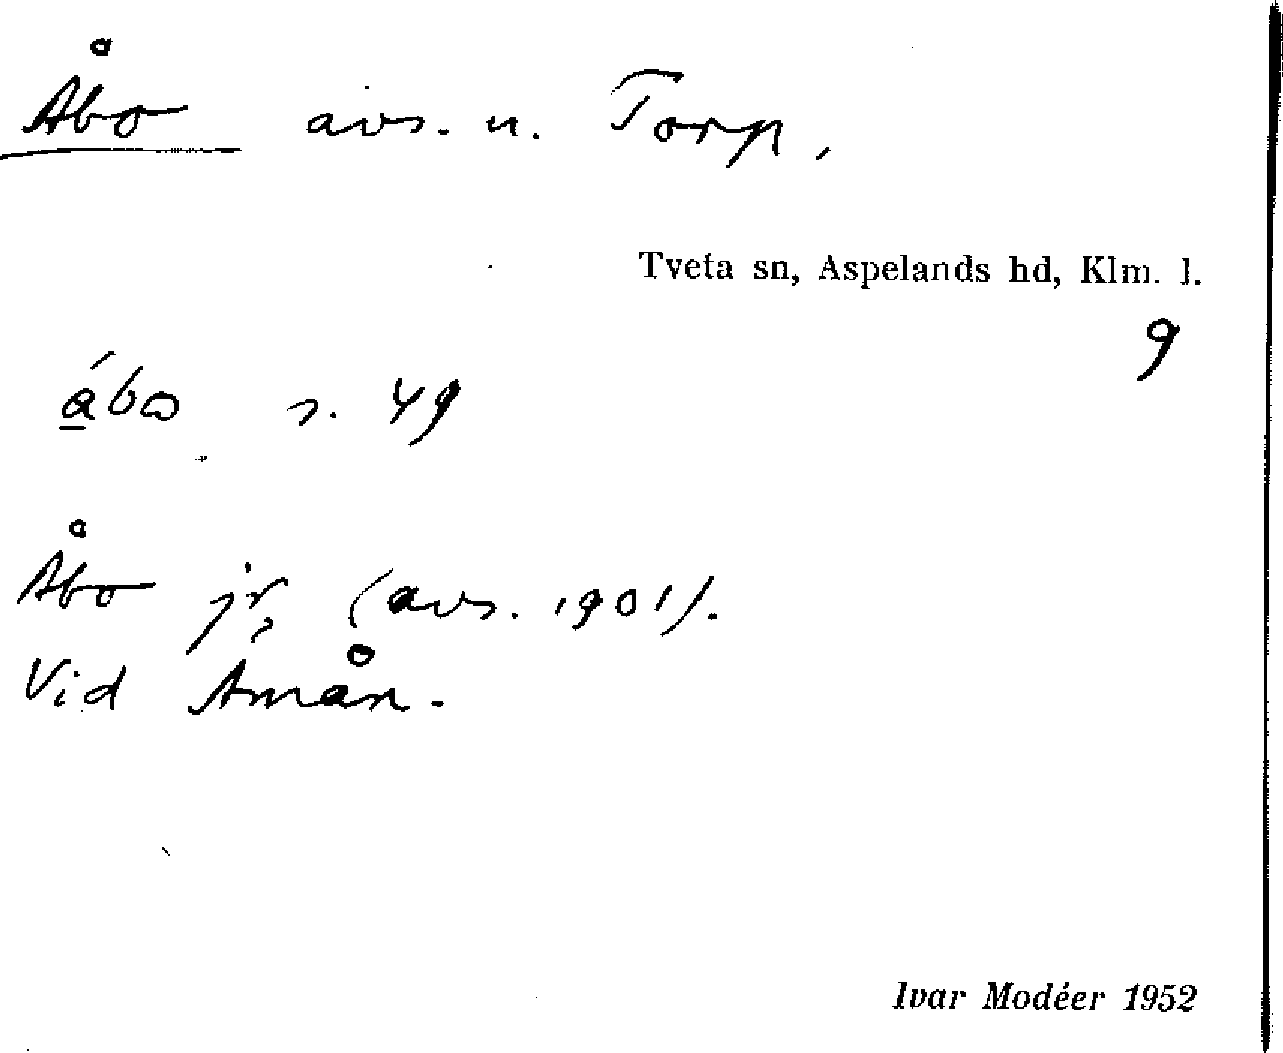 Åbo avs. u. Torp.
Tveta sn, Aspelands hd, Klm. l.
9
ábω s. 49
Åbo jr, (avs. 1901).
Vid Åmån.
Ivar Modéer 1952